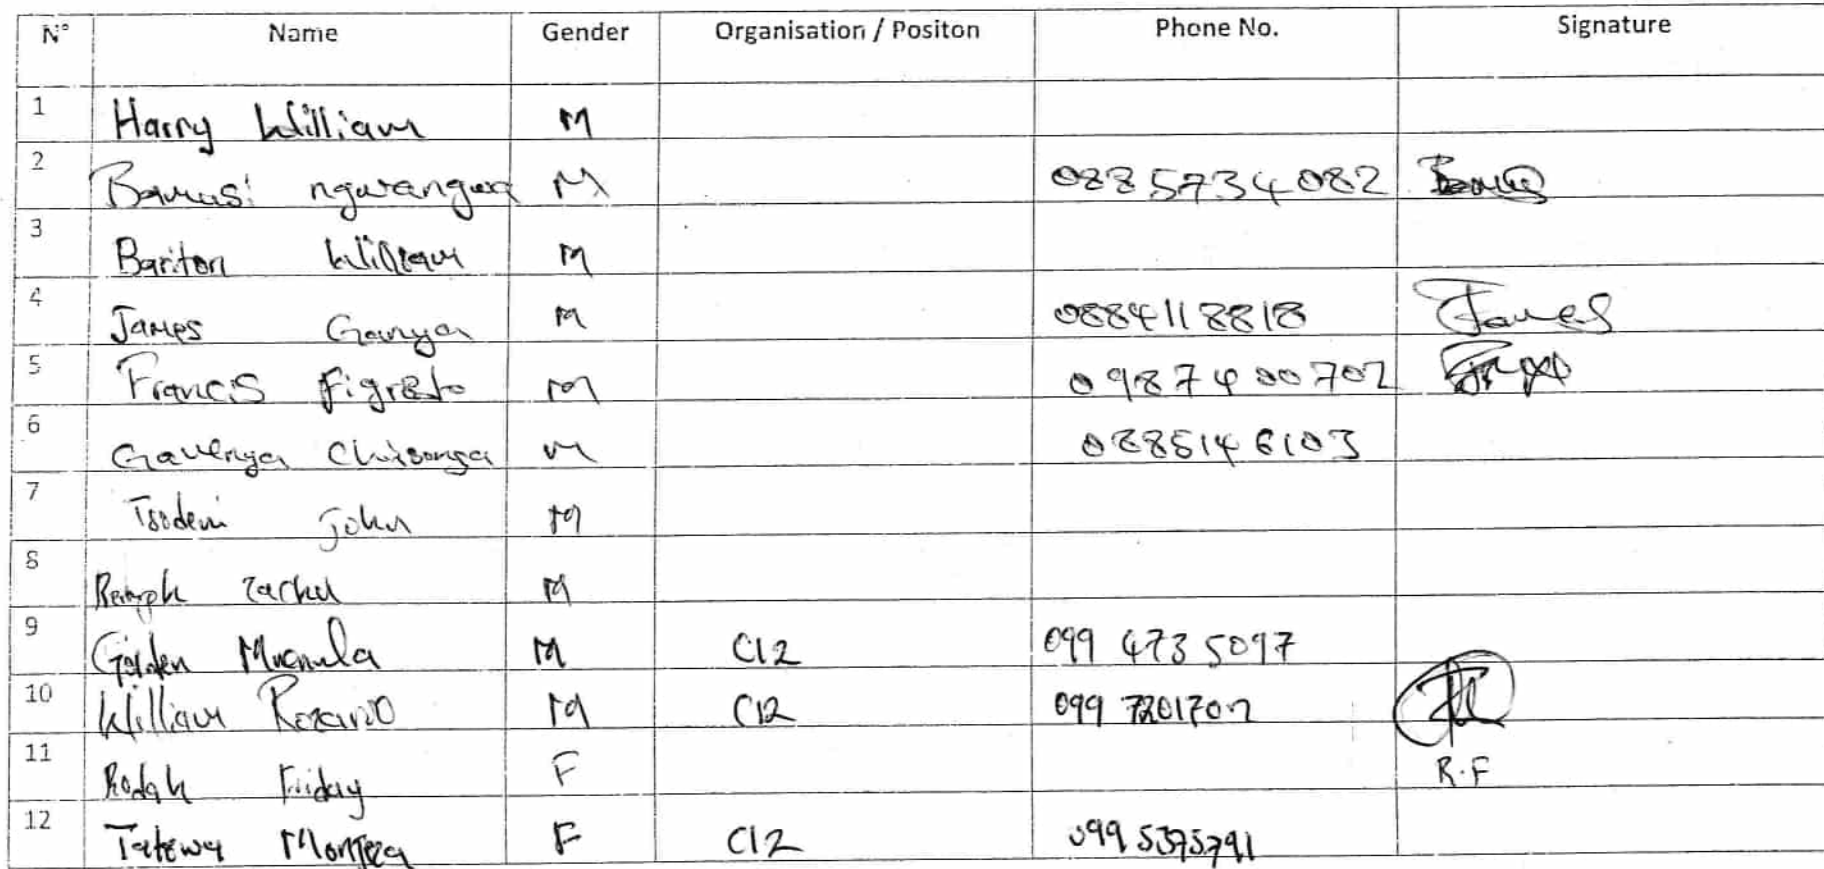 N° Name Gender Organisation / Positon Phone No. Signature
1 Harry William M
2 Bamusi ngwangwa M 0885734082
3 Bariton William M
4 James Ganya M 0884118818 James
5 Francis Figreto M 0987400702
6 Gavenya Chisonga M 0885146103
7 Tsodeni John M
8 M
9 Golden M C12 099 4735097
10 William Rozario M C12 099 7201702
11 Rodah Friday F R.F
12 Tatewa F C12 099 5375791